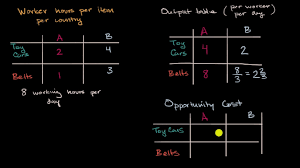 Worker hours per item
per country
A B
Toy
Cars 2 4
Belts 1 3
8 working hours per
day
Output table (per worker)
per day
A B
Toy
Cars 4 2
Belts 8 8/3 = 2 2/3
Opportunity Cost
A B
Toy Cars
Belts